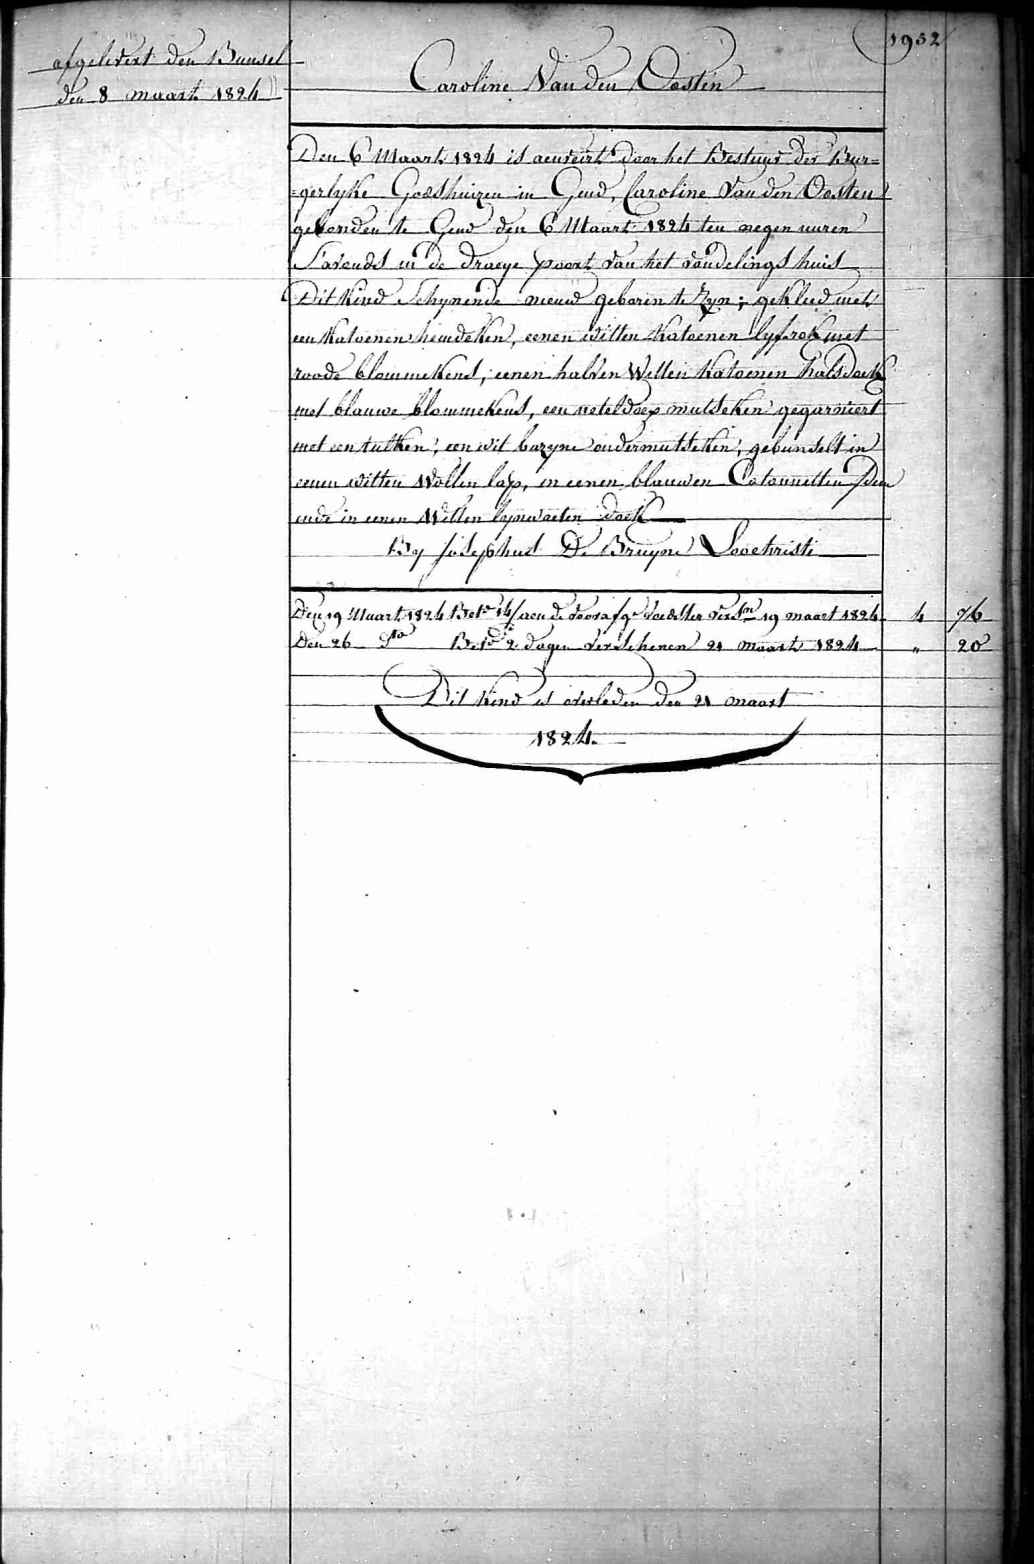 1952
afgelevert den Bunsel
den 8 maart 1824
Caroline Van den Oosten
Den 6 Maart 1824 is aenveirt door het Bestuur der Bur=
=gerlyke Godshuizen in Gend, Caroline Van den Oosten
gevonden te Gend den 6 Maart 1824 ten negen uuren
S'avonds in de draeye poort van het vondelings huis
Dit Kind Schynende nieuw geboren te Zyn; gekleed met
een Katoenen hemdeken, eenen witten Katoenen lyfrok met
roode blommekens, eenen halven Witten Katoenen halsdoek
met blauwe blommekens, een neteldoex mutseken gegarniert
met een tulken; een wit bazyne ondermutseken, gebunselt in
eenen witten Wollen lap, en eenen blauwen Catonnetten
ende in eenen Witten lynwaeten doek
By Josephus De Bruyne Loochristi
Den 19 Maart 1824 Bete 14/ aen de voorafge Voedster versen 19 maart 1824 4 76
Den 26 do Bete 2 dagen verschenen 21 maart 1824 " 20
Dit Kind is overleden den 21 maart
1824.